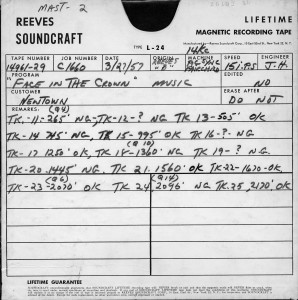 MAST- 2
REEVES
SOUNDCRAFT
LIFETIME
MAGNETIC RECORDING TAPE
TYPE L-24
14KC
TAPE NUMBER JOB NUMBER DATE ORIGINAL MACHINE SPEED ENGINEER
14961-29 C1660 3/27/57 15 I.P.S J.H.
PROGRAM EDITED
"FACE IN THE CROWN" MUSIC NO
CUSTOMER ERASE AFTER
NEWTOWN DO NOT
REMARKS: (Q4)
TK-11-265' NG-TK-12-? NG TK 13-505' OK
TK-14 745' NG, TK 15-995' OK TK 16-? NG
(Q10)
TK-17 1250' OK, TK 18-1360' NG TK 19-? NG.
TK-20.1445' NG, TK 21.1560' OK TK-22-1670-OK
(Q6) (Q14)
TK-23-2070' OK TK 24 2096' NG TK.25,2170', OK
LIFETIME GUARANTEE